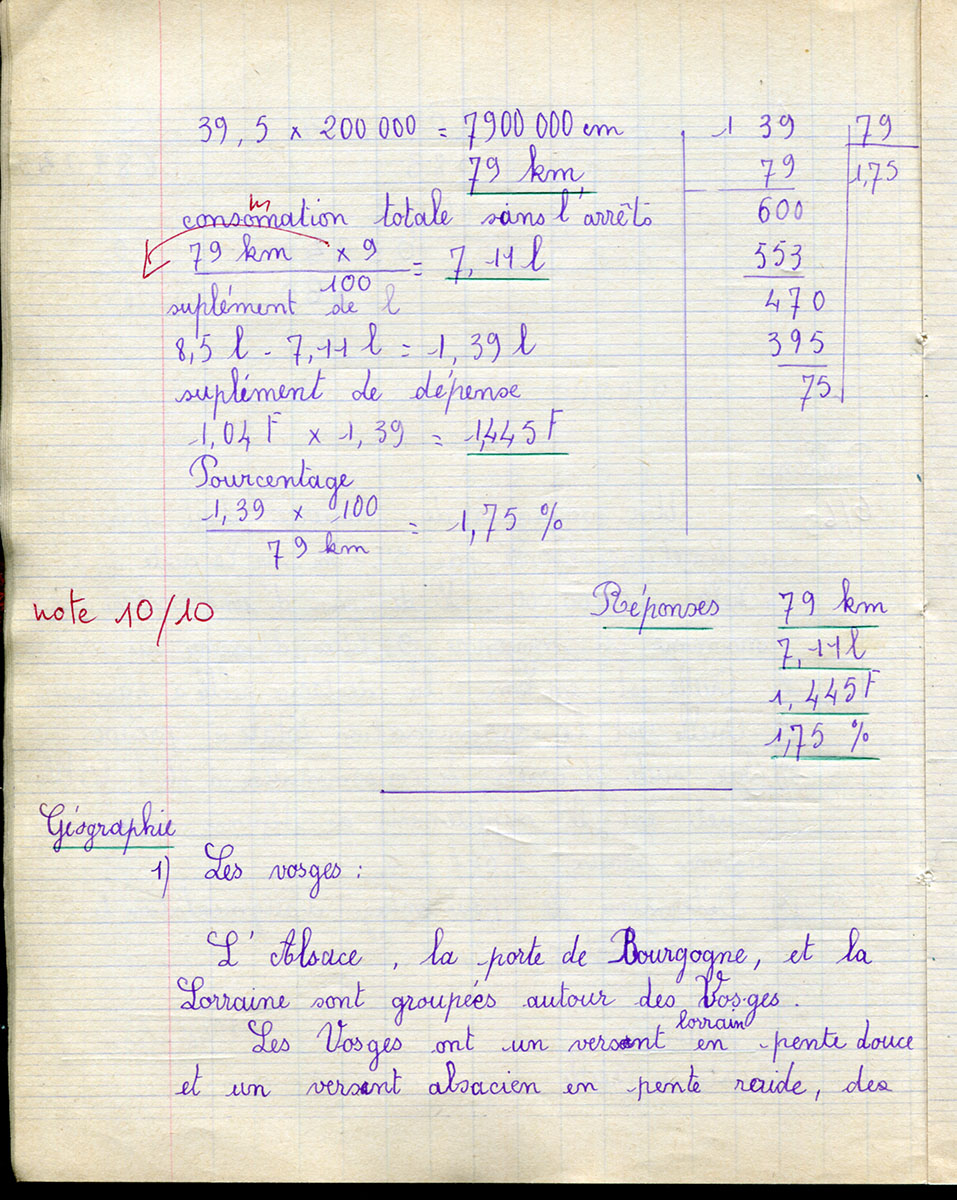 39,5 x 200 000 = 7900 000 cm
79 km
consomation totale sans l'arrêts
m
79 km x 9
100
= 7,11 l
suplément de l
8,5 l - 7,11 l = 1,39 l
suplément de dépense
1,04 F x 1,39 = 1,445 F
Pourcentage
1,39 x 100
79 km
= 1,75 %
1 39 79
79 1,75
600
553
470
395
75
note 10/10
Réponses 79 km
7,11 l
1,445 F
1,75 %
Géographie
1) Les vosges :
L'Alsace, la porte de Bourgogne, et la
Lorraine sont groupées autour des Vosges.
lorrain
Les Vosges ont un versent en pente douce
et un versent alsacien en pente reuide, des